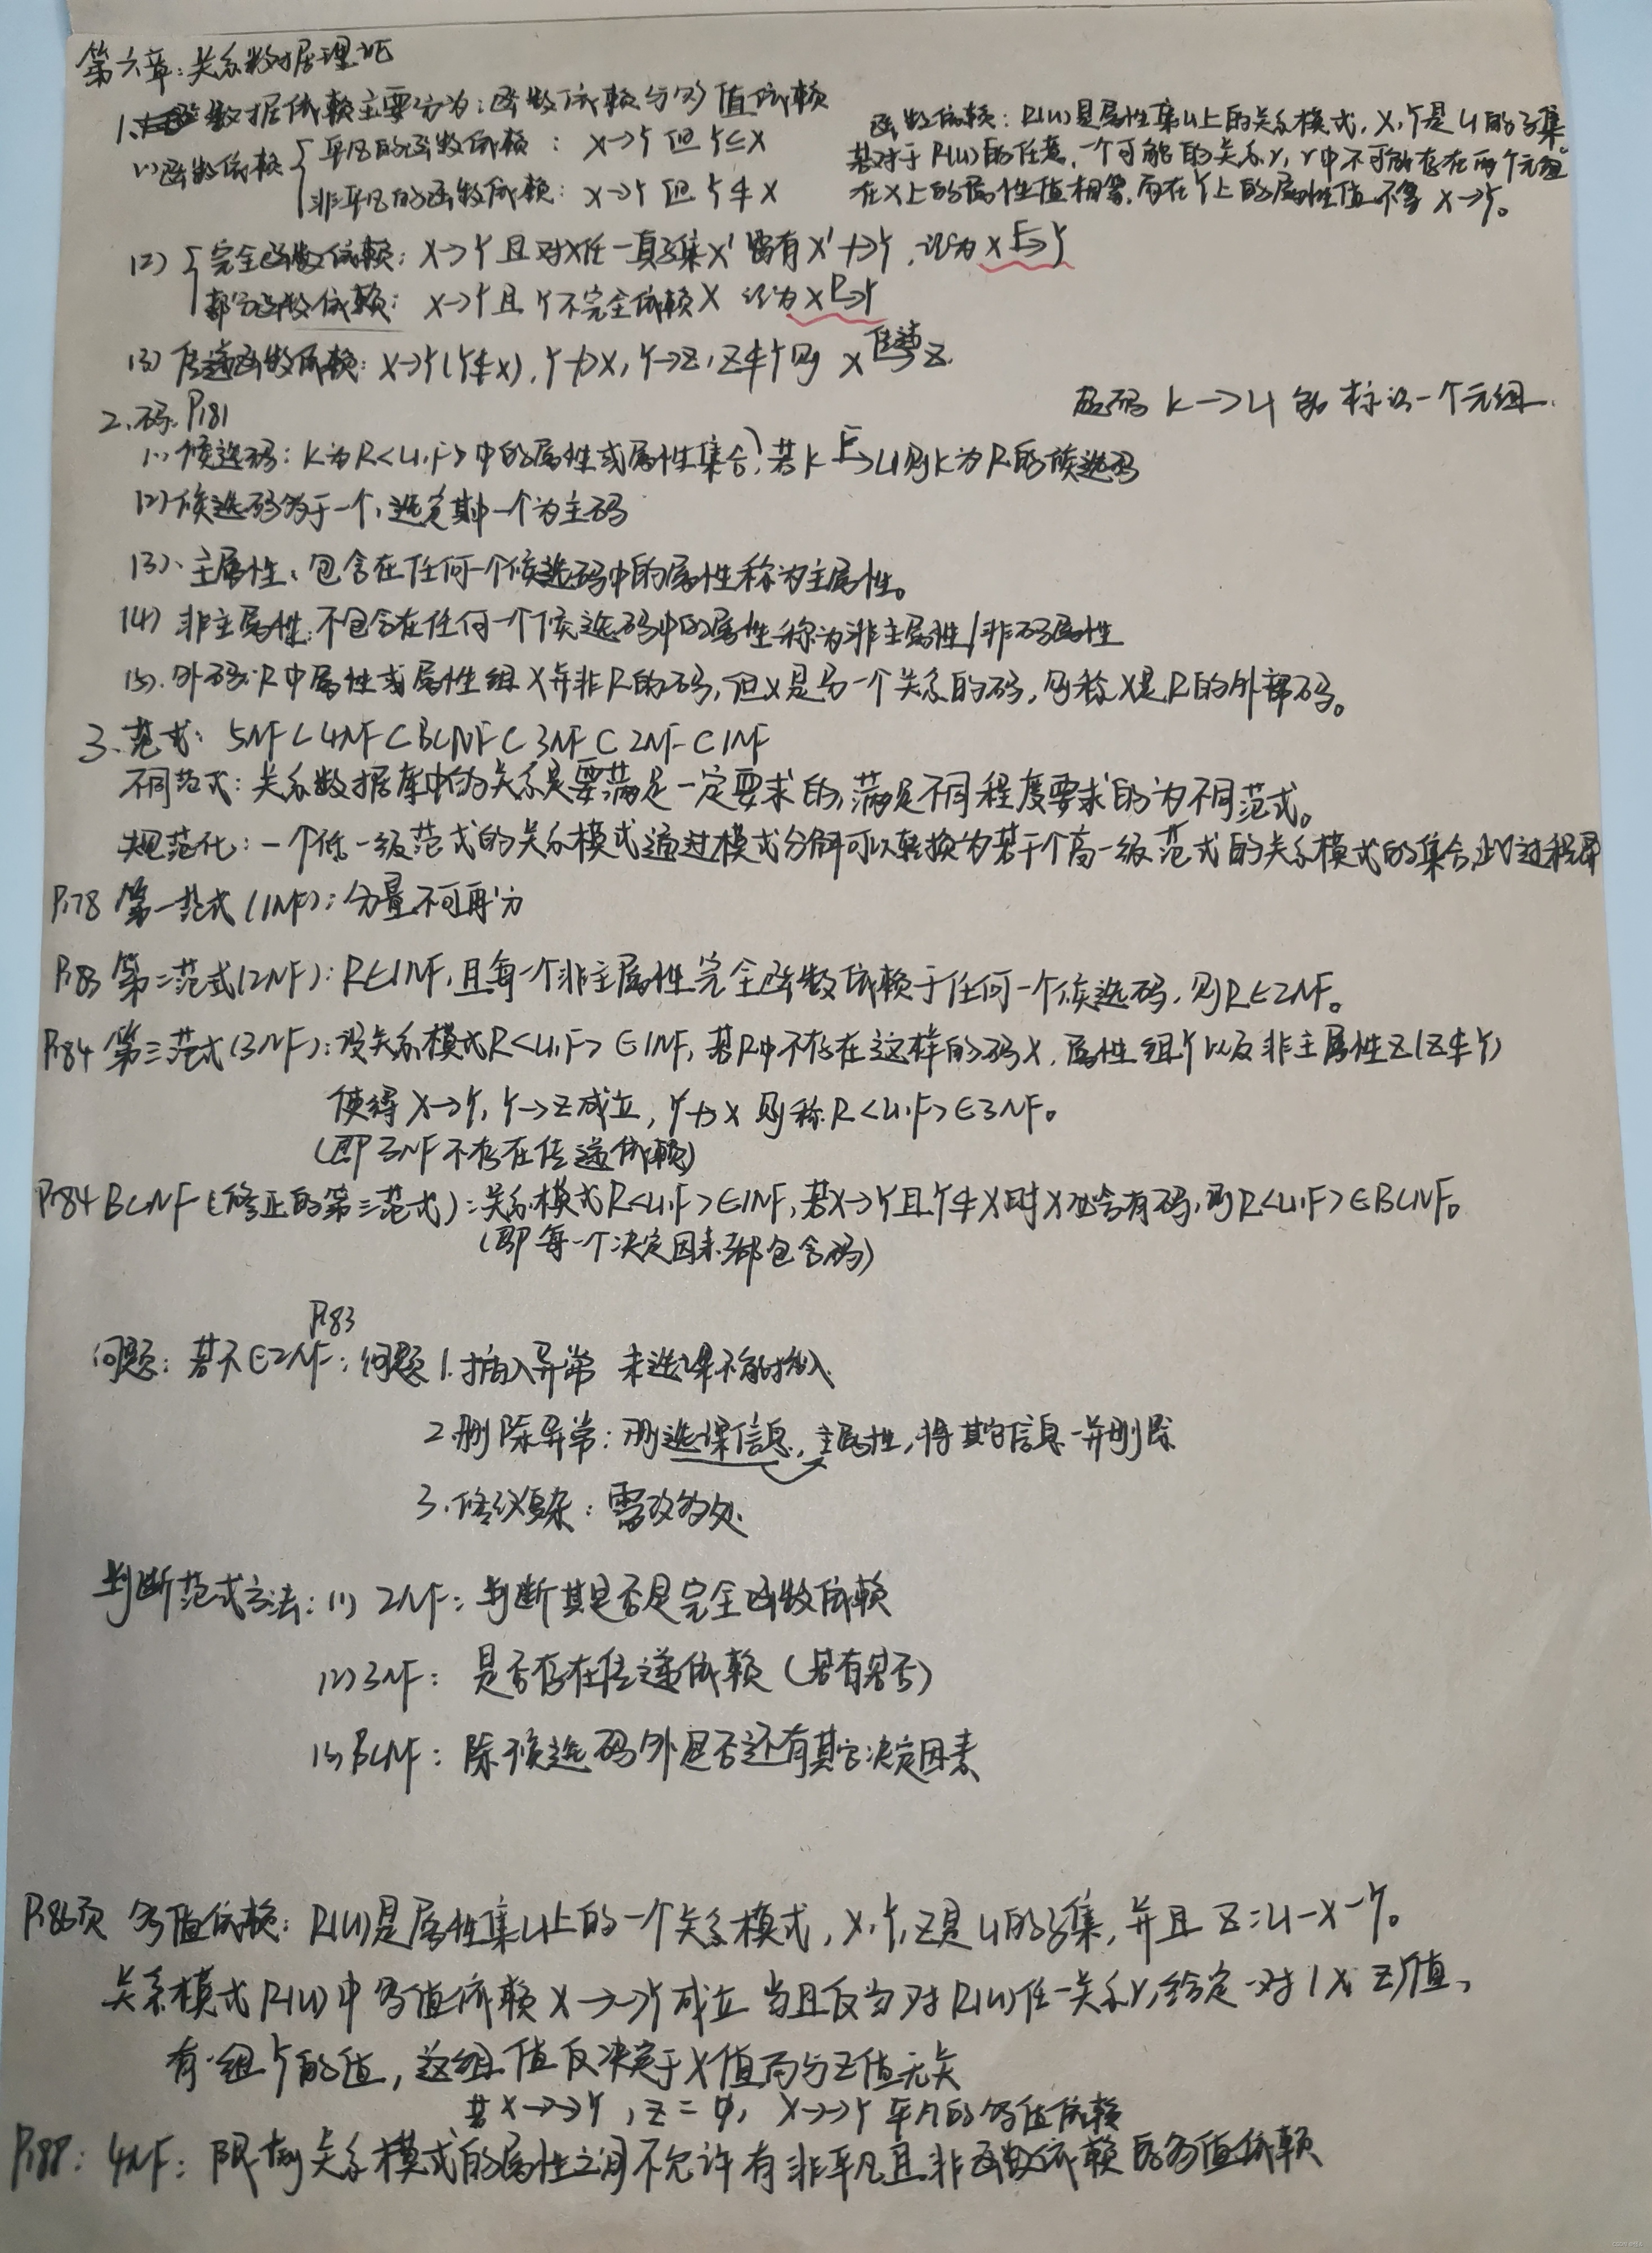 第六章：关系数据理论
1. 数据依赖主要分为：函数依赖与多值依赖
(1)函数依赖 { 平凡的函数依赖： X→Y 但 Y⊆X
非平凡的函数依赖： X→Y 但 Y⊄X
函数依赖：R(U)是属性集U上的关系模式，X,Y是U的子集
若对于R(U)的任意一个可能的关系r，r中不可能存在两个元组
在X上的属性值相等，而在Y上的属性值不等 X→Y。
(2) { 完全函数依赖：X→Y 且对X任一真子集X' 皆有X'↛Y，记为 X F→Y
部分函数依赖： X→Y且 Y不完全依赖X 记为 X P→Y
(3) 传递函数依赖：X→Y(Y⊄X)，Y↛X，Y→Z，Z⊄Y则 X 传递→ Z.
2.码.P181
码 K→U 标识一个元组.
(1)候选码：K为R<U,F>中的属性或属性集合，若K F→U则K为R的候选码
(2)候选码多于一个，选定其中一个为主码
(3)、主属性：包含在任何一个候选码中的属性称为主属性。
(4) 非主属性：不包含在任何一个候选码中的属性称为非主属性/非码属性
(5).外码：R中属性或属性组X并非R的码，但X是另一个关系的码，则称X是R的外部码。
3.范式： 5NF⊂4NF⊂BCNF⊂3NF⊂2NF⊂1NF
不同范式：关系数据库中的关系是要满足一定要求的，满足不同程度要求的为不同范式。
规范化：一个低一级范式的关系模式通过模式分解可以转换为若干个高一级范式的关系模式的集合，此过程即
P178 第一范式(1NF)：分量不可再分
P183 第二范式(2NF)：R∈1NF，且每一个非主属性完全函数依赖于任何一个候选码，则R∈2NF。
P184 第三范式(3NF)：设关系模式R<U,F>∈1NF，若R中不存在这样的码X，属性组Y以及非主属性Z(Z⊄Y)
使得 X→Y，Y→Z成立，Y↛X 则称R<U,F>∈3NF。
(即3NF不存在传递依赖)
P184 BCNF(修正的第三范式)：关系模式R<U,F>∈1NF，若X→Y且Y⊄X时X必含有码，则R<U,F>∈BCNF。
(即每一个决定因素都包含码)
P183
问题：若不∈2NF：问题 1.插入异常 未选课不能插入
2.删除异常：删选课信息，主属性，将其它信息一并删除
3.修改复杂：需改多处
判断范式方法：(1) 2NF：判断其是否是完全函数依赖
(2)3NF： 是否存在传递依赖（若有则否）
(3)BCNF： 除候选码外是否还有其它决定因素
P186页 多值依赖：R(U)是属性集U上的一个关系模式，X,Y,Z是U的子集，并且 Z=U-X-Y。
关系模式R(U)中多值依赖X→→Y成立 当且仅当对R(U)任一关系r，给定一对(X,Z)值，
有一组Y的值，这组值仅决定于X值而与Z值无关
若X→→Y，Z=Φ，X→→Y 平凡的多值依赖
4NF：限制关系模式的属性之间不允许有非平凡且非函数依赖的多值依赖